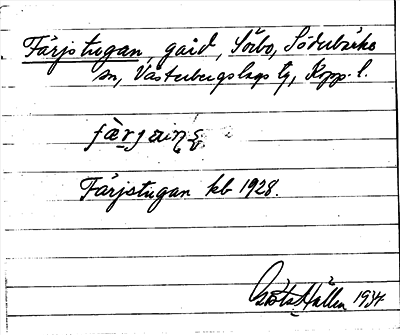 Färjstugan, gård, Sörbo, Söderbärke
sn, Västerbergslags tg, Kopp. l.
Färjstugan kb 1928.
Gösta Hallen 1934